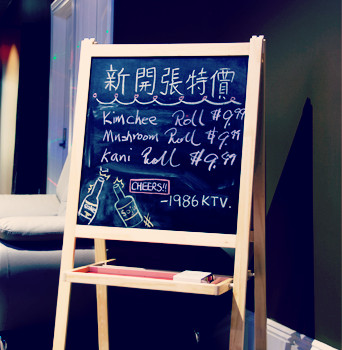 新開張特價
Kimchee Roll $9.99
Mushroom Roll $9.99
Kani Roll $9.99
CHEERS!!
-1986 KTV.